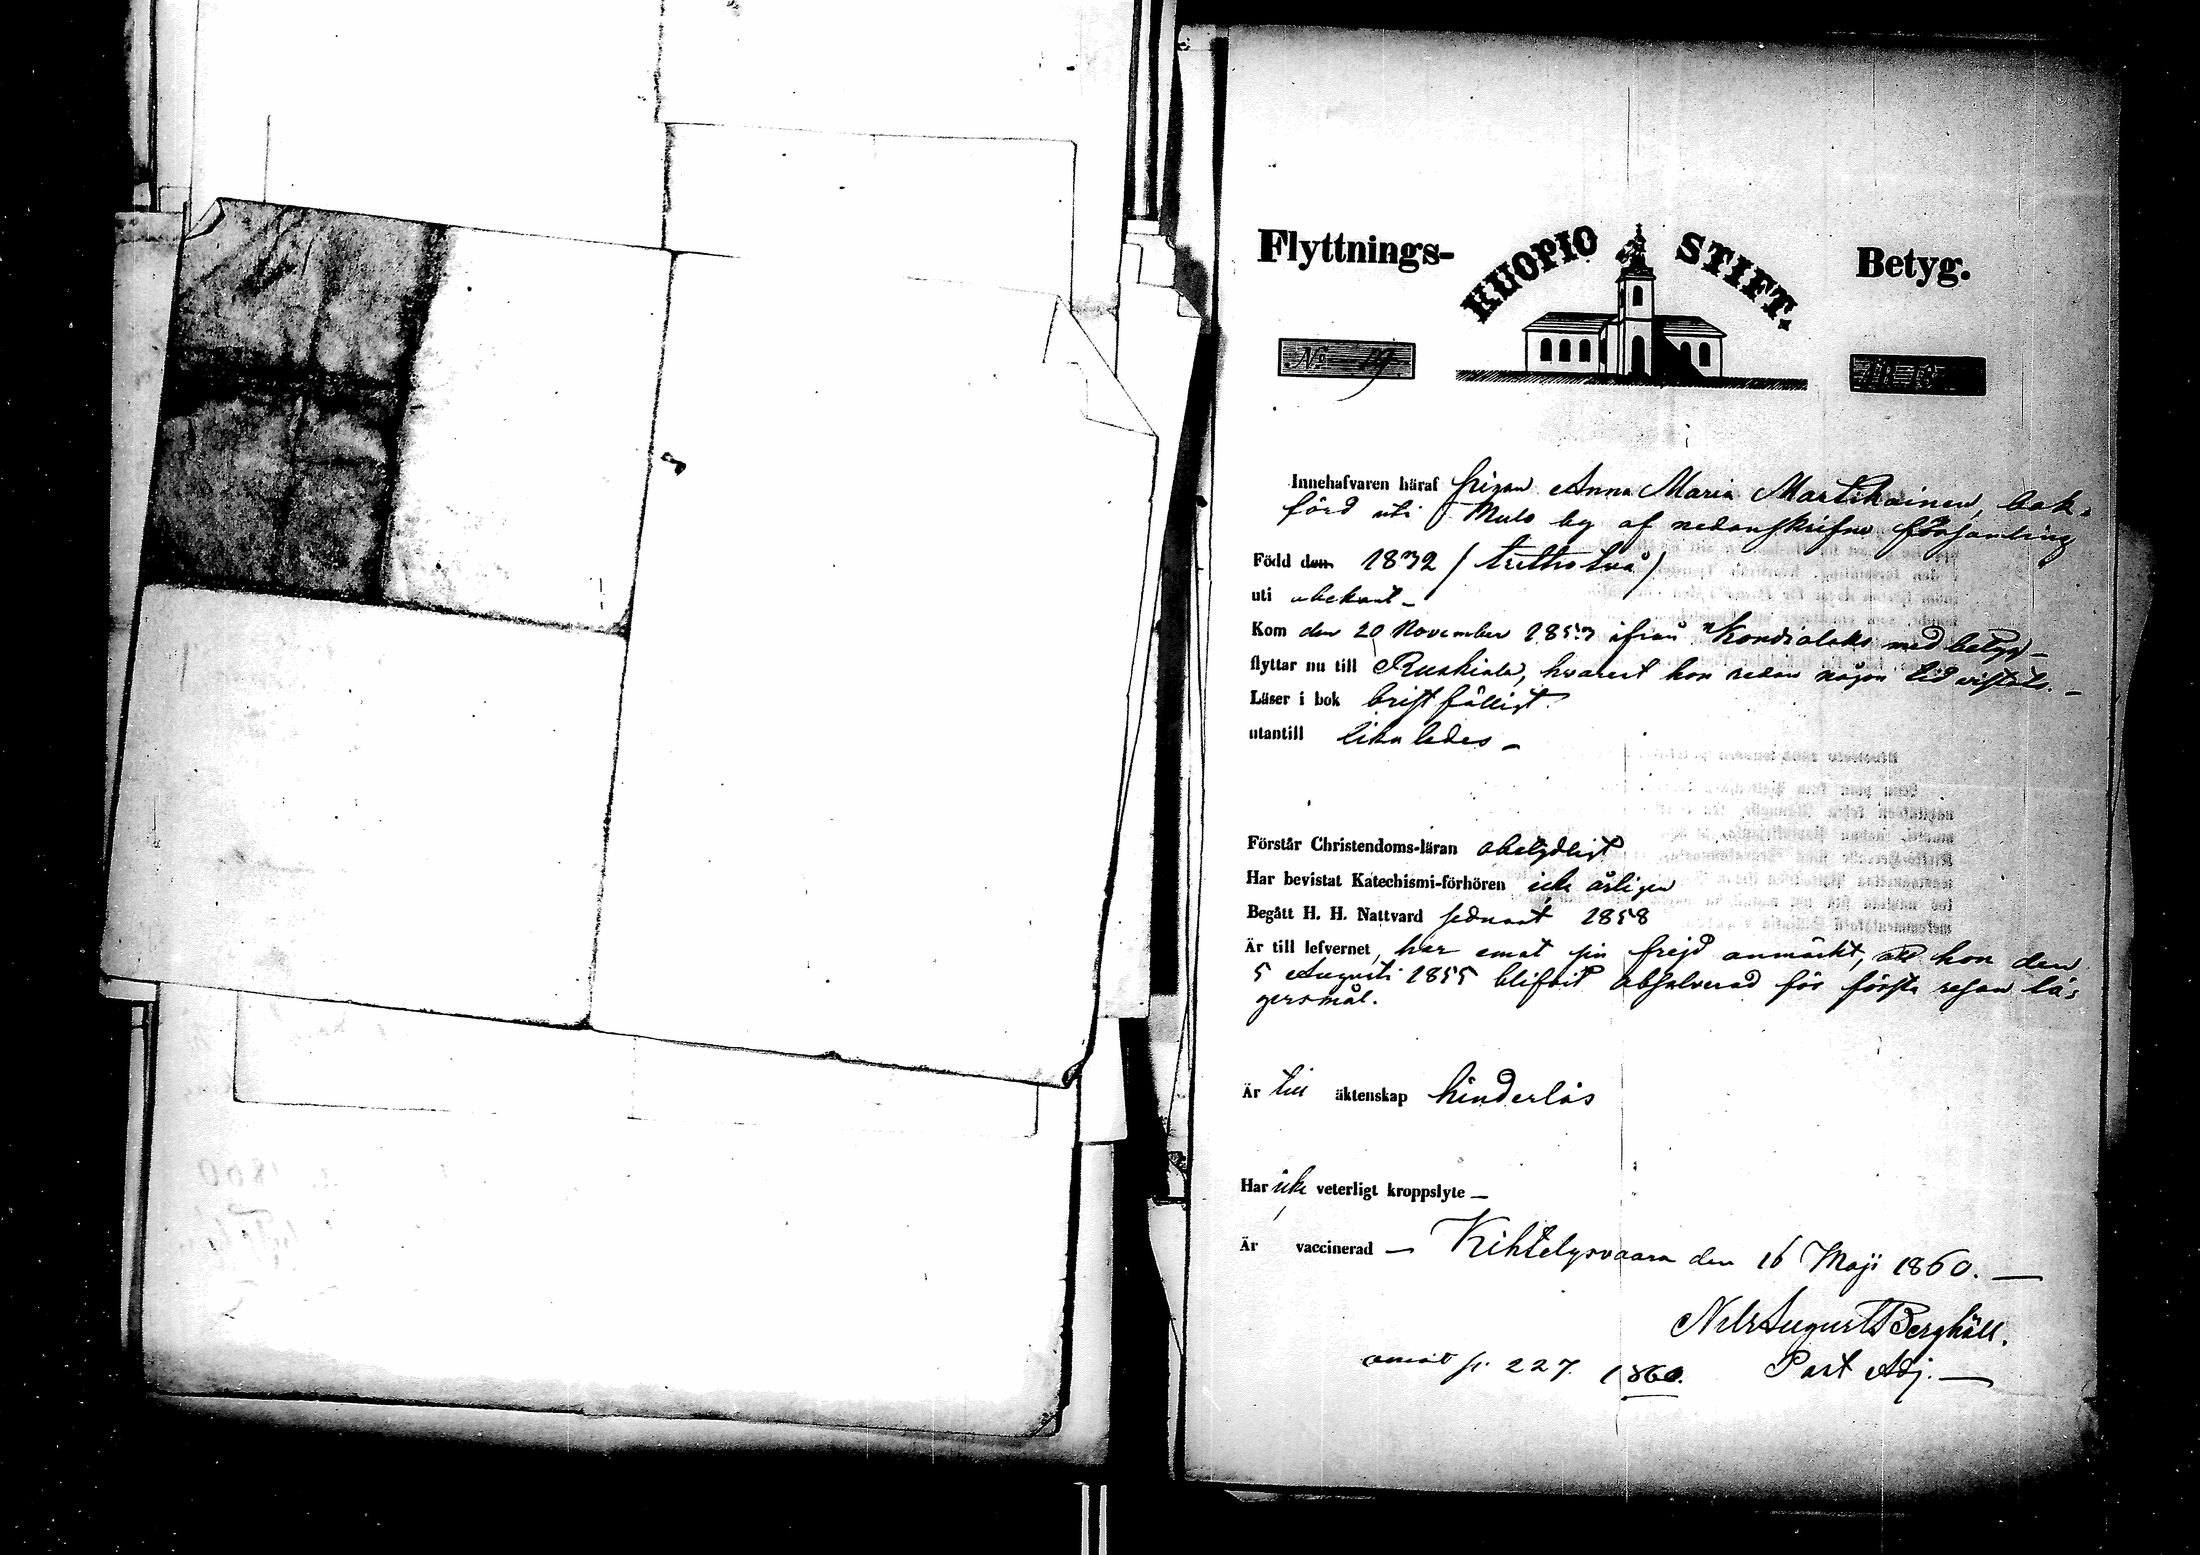 Flyttnings- KUOPIO STIFT. Betyg.
No 19.
Innehafvaren häraf pigan Anna Maria Martikainen, bok-
förd uti Mulo by af nedanskrifne församling
Född den 1832 / trettio två /
uti obekant -
Kom den 20 November 1853 ifrån Kondialaks med betyg -
flyttar nu till Ruskiala, hvarest hon redan någon tid vistats. -
Läser i bok bristfälligt
utantill lika ledes -
Förstår Christendoms-läran obetydligt
Har bevistat Katechismi-förhören icke årligen
Begått H. H. Nattvard sednast 1858
Är till lefvernet, har emot sin frejd anmärkt, att hon den
5 Augusti 1855 blifvit absolverad för första resan lä-
gersmål.
Är till äktenskap hinderlös
Har icke veterligt kroppslyte -
Är vaccinerad - Kihtelysvaara den 16 Maji 1860. -
Nils August Berghäll.
Past Adj. -
p. 227. 1860.